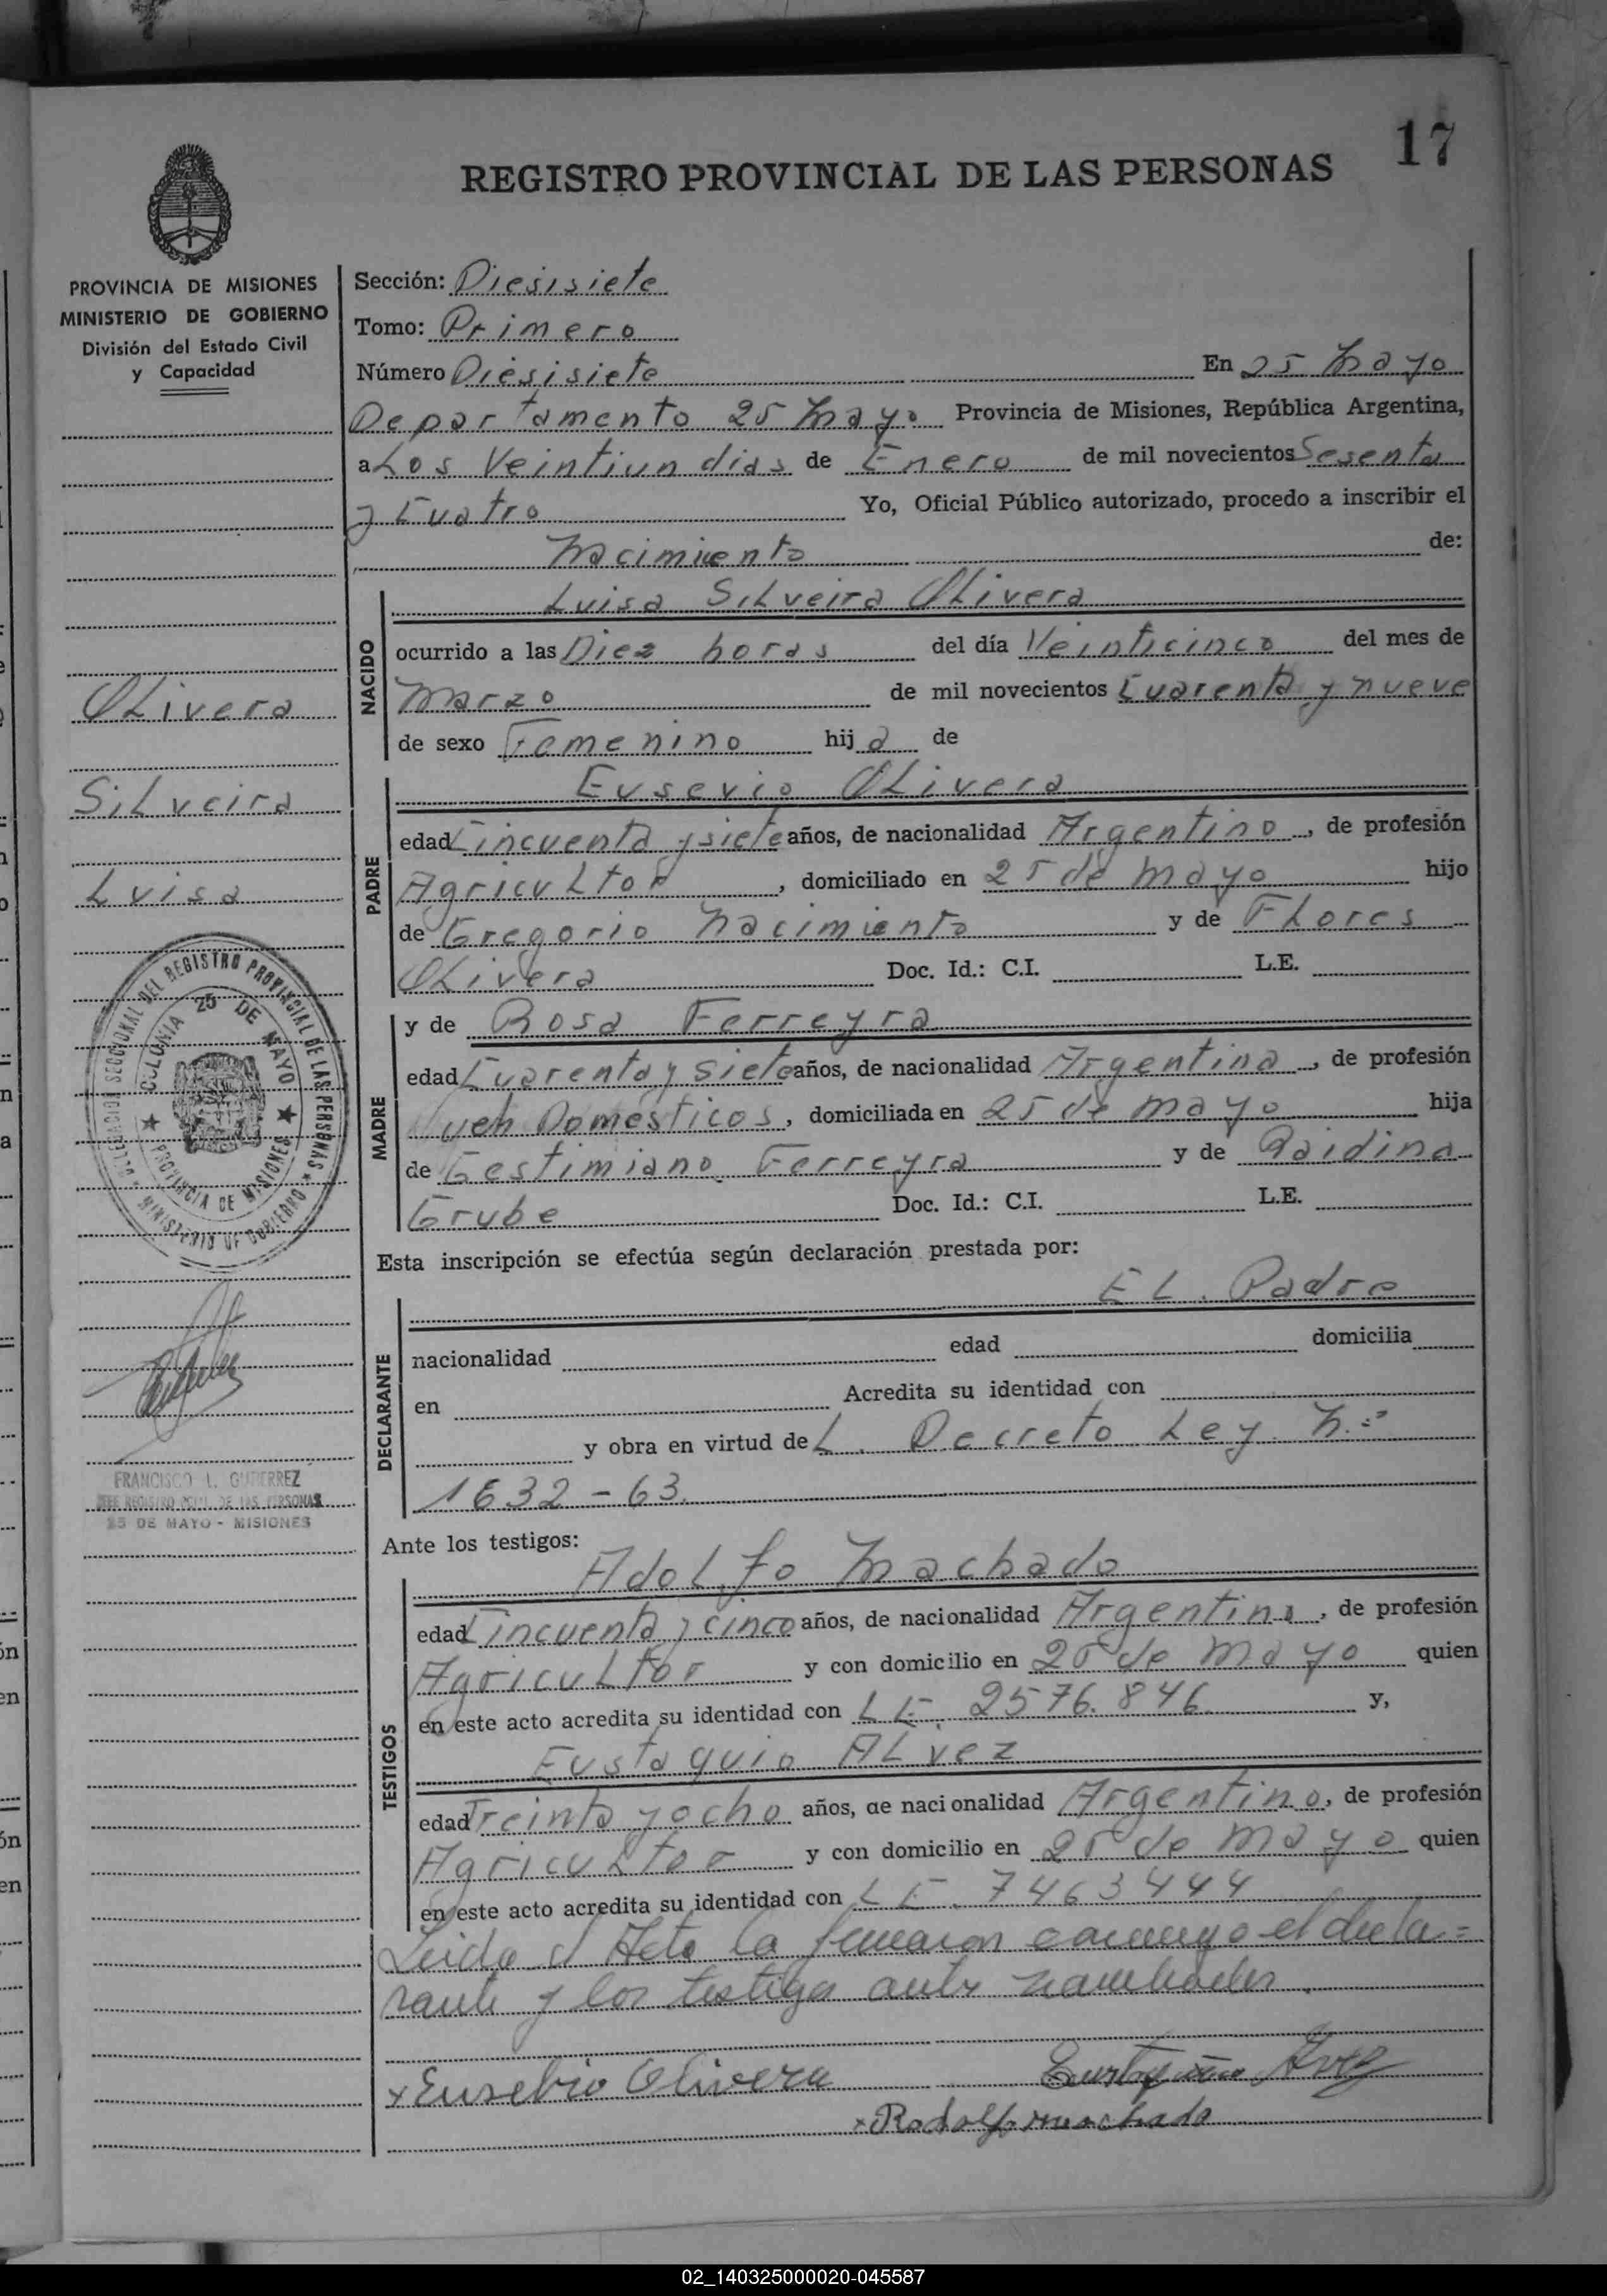 17
REGISTRO PROVINCIAL DE LAS PERSONAS
PROVINCIA DE MISIONES
MINISTERIO DE GOBIERNO
División del Estado Civil
y Capacidad
Sección: Diesisiete
Tomo: Primero
Número Diesisiete En 25 Mayo
Departamento 25 Mayo Provincia de Misiones, República Argentina,
a Los Veintiun dias de Enero de mil novecientos Sesenta
y Cuatro Yo, Oficial Público autorizado, procedo a inscribir el
Nacimiento de:
Luisa Silveira Olivera
NACIDO
ocurrido a las Diez horas del día Veinticinco del mes de
Marzo de mil novecientos Cuarenta y nueve
de sexo Femenino hija de
Olivera
Silveira
Luisa
Eusevio Olivera
PADRE
edad Cincuenta y siete años, de nacionalidad Argentino, de profesión
Agricultor, domiciliado en 25 de Mayo hijo
de Gregorio Nacimiento y de Flores
Olivera Doc. Id.: C.I. L.E.
y de Rosa Ferreyra
MADRE
edad Cuarenta y siete años, de nacionalidad Argentina, de profesión
Domésticos, domiciliada en 25 de Mayo hija
de Gestimiano Ferreyra y de
Grube Doc. Id.: C.I. L.E.
DELEGACION SECCIONAL DEL REGISTRO PROVINCIAL DE LAS PERSONAS
MINISTERIO DE GOBIERNO
COLONIA 25 DE MAYO
PROVINCIA DE MISIONES
Esta inscripción se efectúa según declaración prestada por:
EL. Padre
DECLARANTE
nacionalidad edad domicilia
en Acredita su identidad con
y obra en virtud deL. Decreto Ley N.º
1632-63.
FRANCISCO L. GUTIERREZ
JEFE REGISTRO PCIAL. DE LAS PERSONAS
25 DE MAYO - MISIONES
Ante los testigos:
Adolfo Machado
TESTIGOS
edad Cincuenta y cinco años, de nacionalidad Argentino, de profesión
Agricultor y con domicilio en 25 de Mayo quien
en este acto acredita su identidad con L E. 2576.846 y,
Eustaquio Alvez
edad Treinta y ocho años, de nacionalidad Argentino, de profesión
Agricultor y con domicilio en 25 de Mayo quien
en este acto acredita su identidad con L E. 7463444
Leida el Acta la firmaron conmigo el decla=
rante y los testigos antes nombrados
Eusebio Olivera
Rodolfo machado
02_140325000020-045587